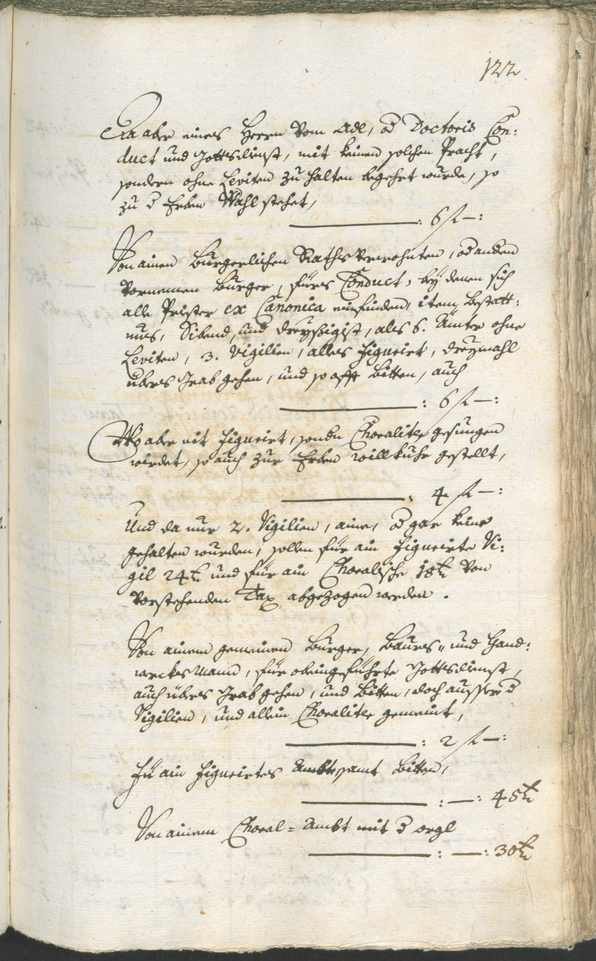 122.
Da aber eines Herrn vom Adl, od Doctoris Con:
duct und Gottsdienst, mit keinen solchen Pracht,
sondern ohne Leviten zu halten begehrt wurde, so
zu d Erben Wahl stehet,
: 6 f —:
Von einen Burgerlichen Raths verwohnten, od andern
vornemen Burger, fürs Conduct, bey denen sich
alle Priester ex Canonica einfinden, item, bestatt:
nus, Sibend, und dreysigist, als 6. Ämter ohne
Leviten, 3. Vigilien, alles figurirt, dreymahl
übers Grab gehen, und so offt bitten, auch
: 6 f —:
Wo aber nit figurirt, sondn Choraliter gesungen
wirdet, so auch zur Erben willkuhr gestellt,
: 4 f —:
Und da nur 2. Vigilien, aine, od gar keine
gehalten wurden, sollen für ain figurirte Vi:
gil 24 kr und für ain Choralische 18 kr von
vorstehenden Tax abgezogen werden.
Von ainem gemainen Burger, Baurs- und Hand:
wercksmann, für obeingeführte Gottsdienst,
auch übers Grab gehen, und bitten, doch ausser d
Vigilien, und allein Choraliter gemeint,
: 2 f —:
für ain figurirtes Ambt, samt bitten,
: —: 45 kr
Von ainem Choral-Ambt mit d orgl
: —: 30 kr